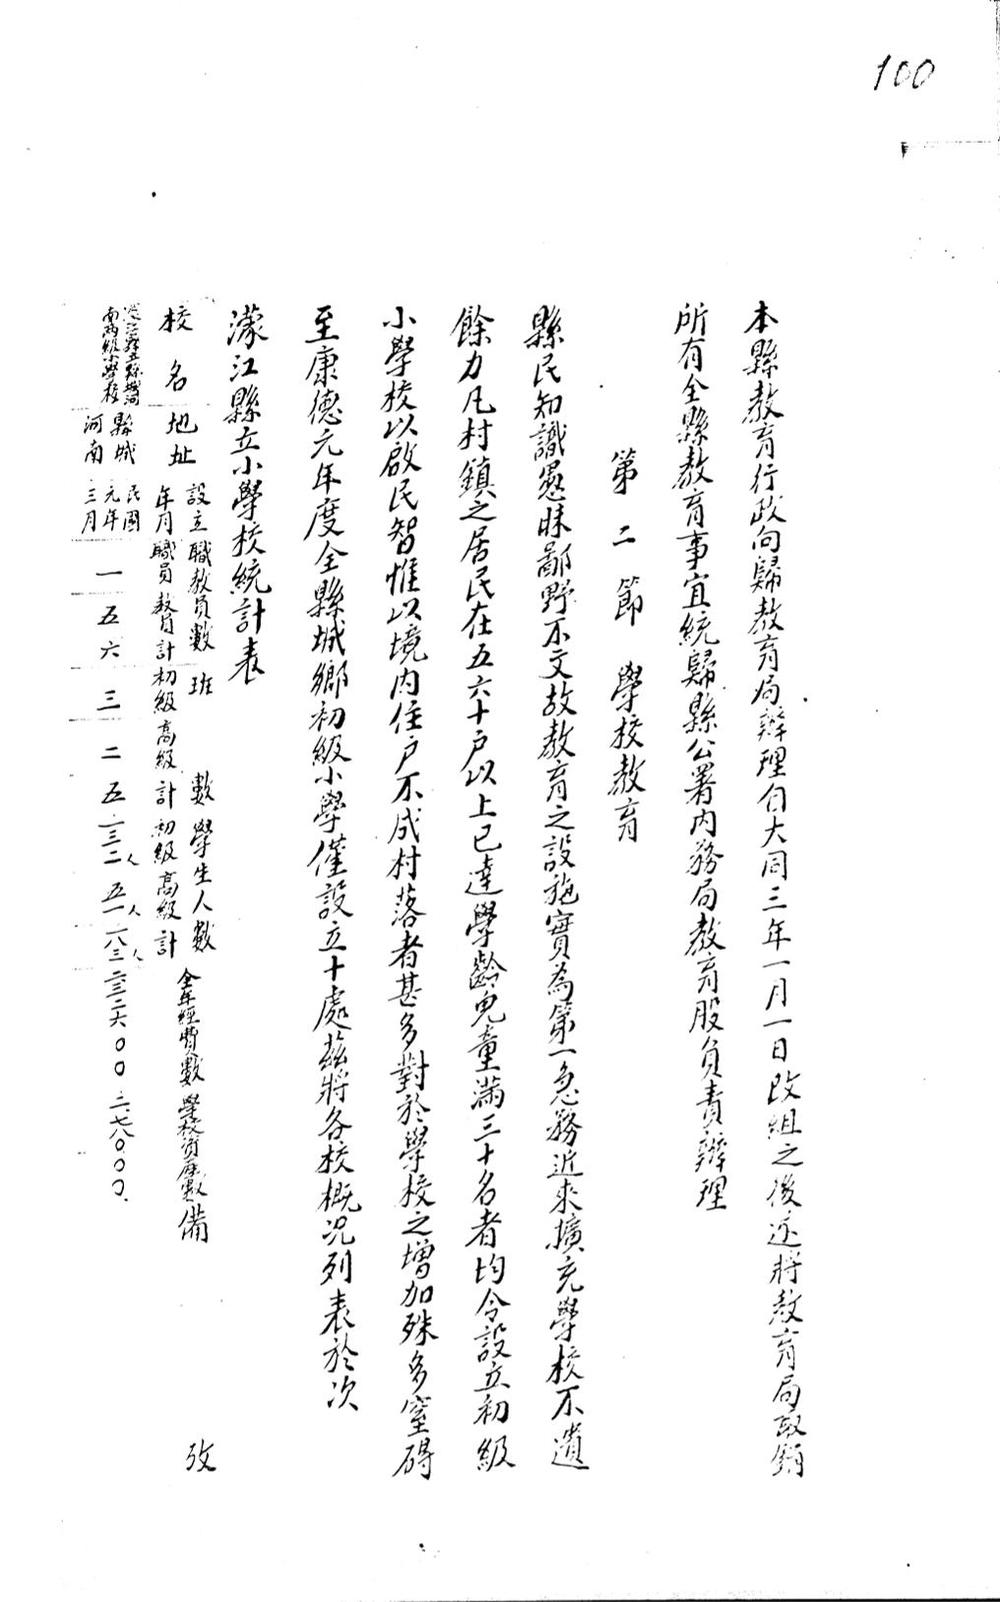 100
本縣教育行政向歸教育局辦理自大同三年一月一日改組之後迳將教育局取銷
所有全縣教育事宜統歸縣公署内務局教育股負責辦理
第二節 學校教育
縣民知識愚昧鄙野不文故教育之設施實為第一急務近來擴充學校不遺
餘力凡村鎮之居民在五六十户以上已達學齡兒童滿三十名者均令設立初級
小學校以啟民智惟以境内住户不成村落者甚多對於學校之增加殊多窒碍
至康德元年度全縣城鄉初級小學僅設立十處茲將各校概況列表於次
濛江縣立小學校統計表
校名 地址 設立年月 職教員數 職員 教員 計 班數 初級 高級 計 學生人數 初級 高級 計 全年經費數 學校資產數 備攷
南兩級小學校 縣城河南 民國元年三月 一 五 六 三 二 五 一三二人 五一人 一八三人